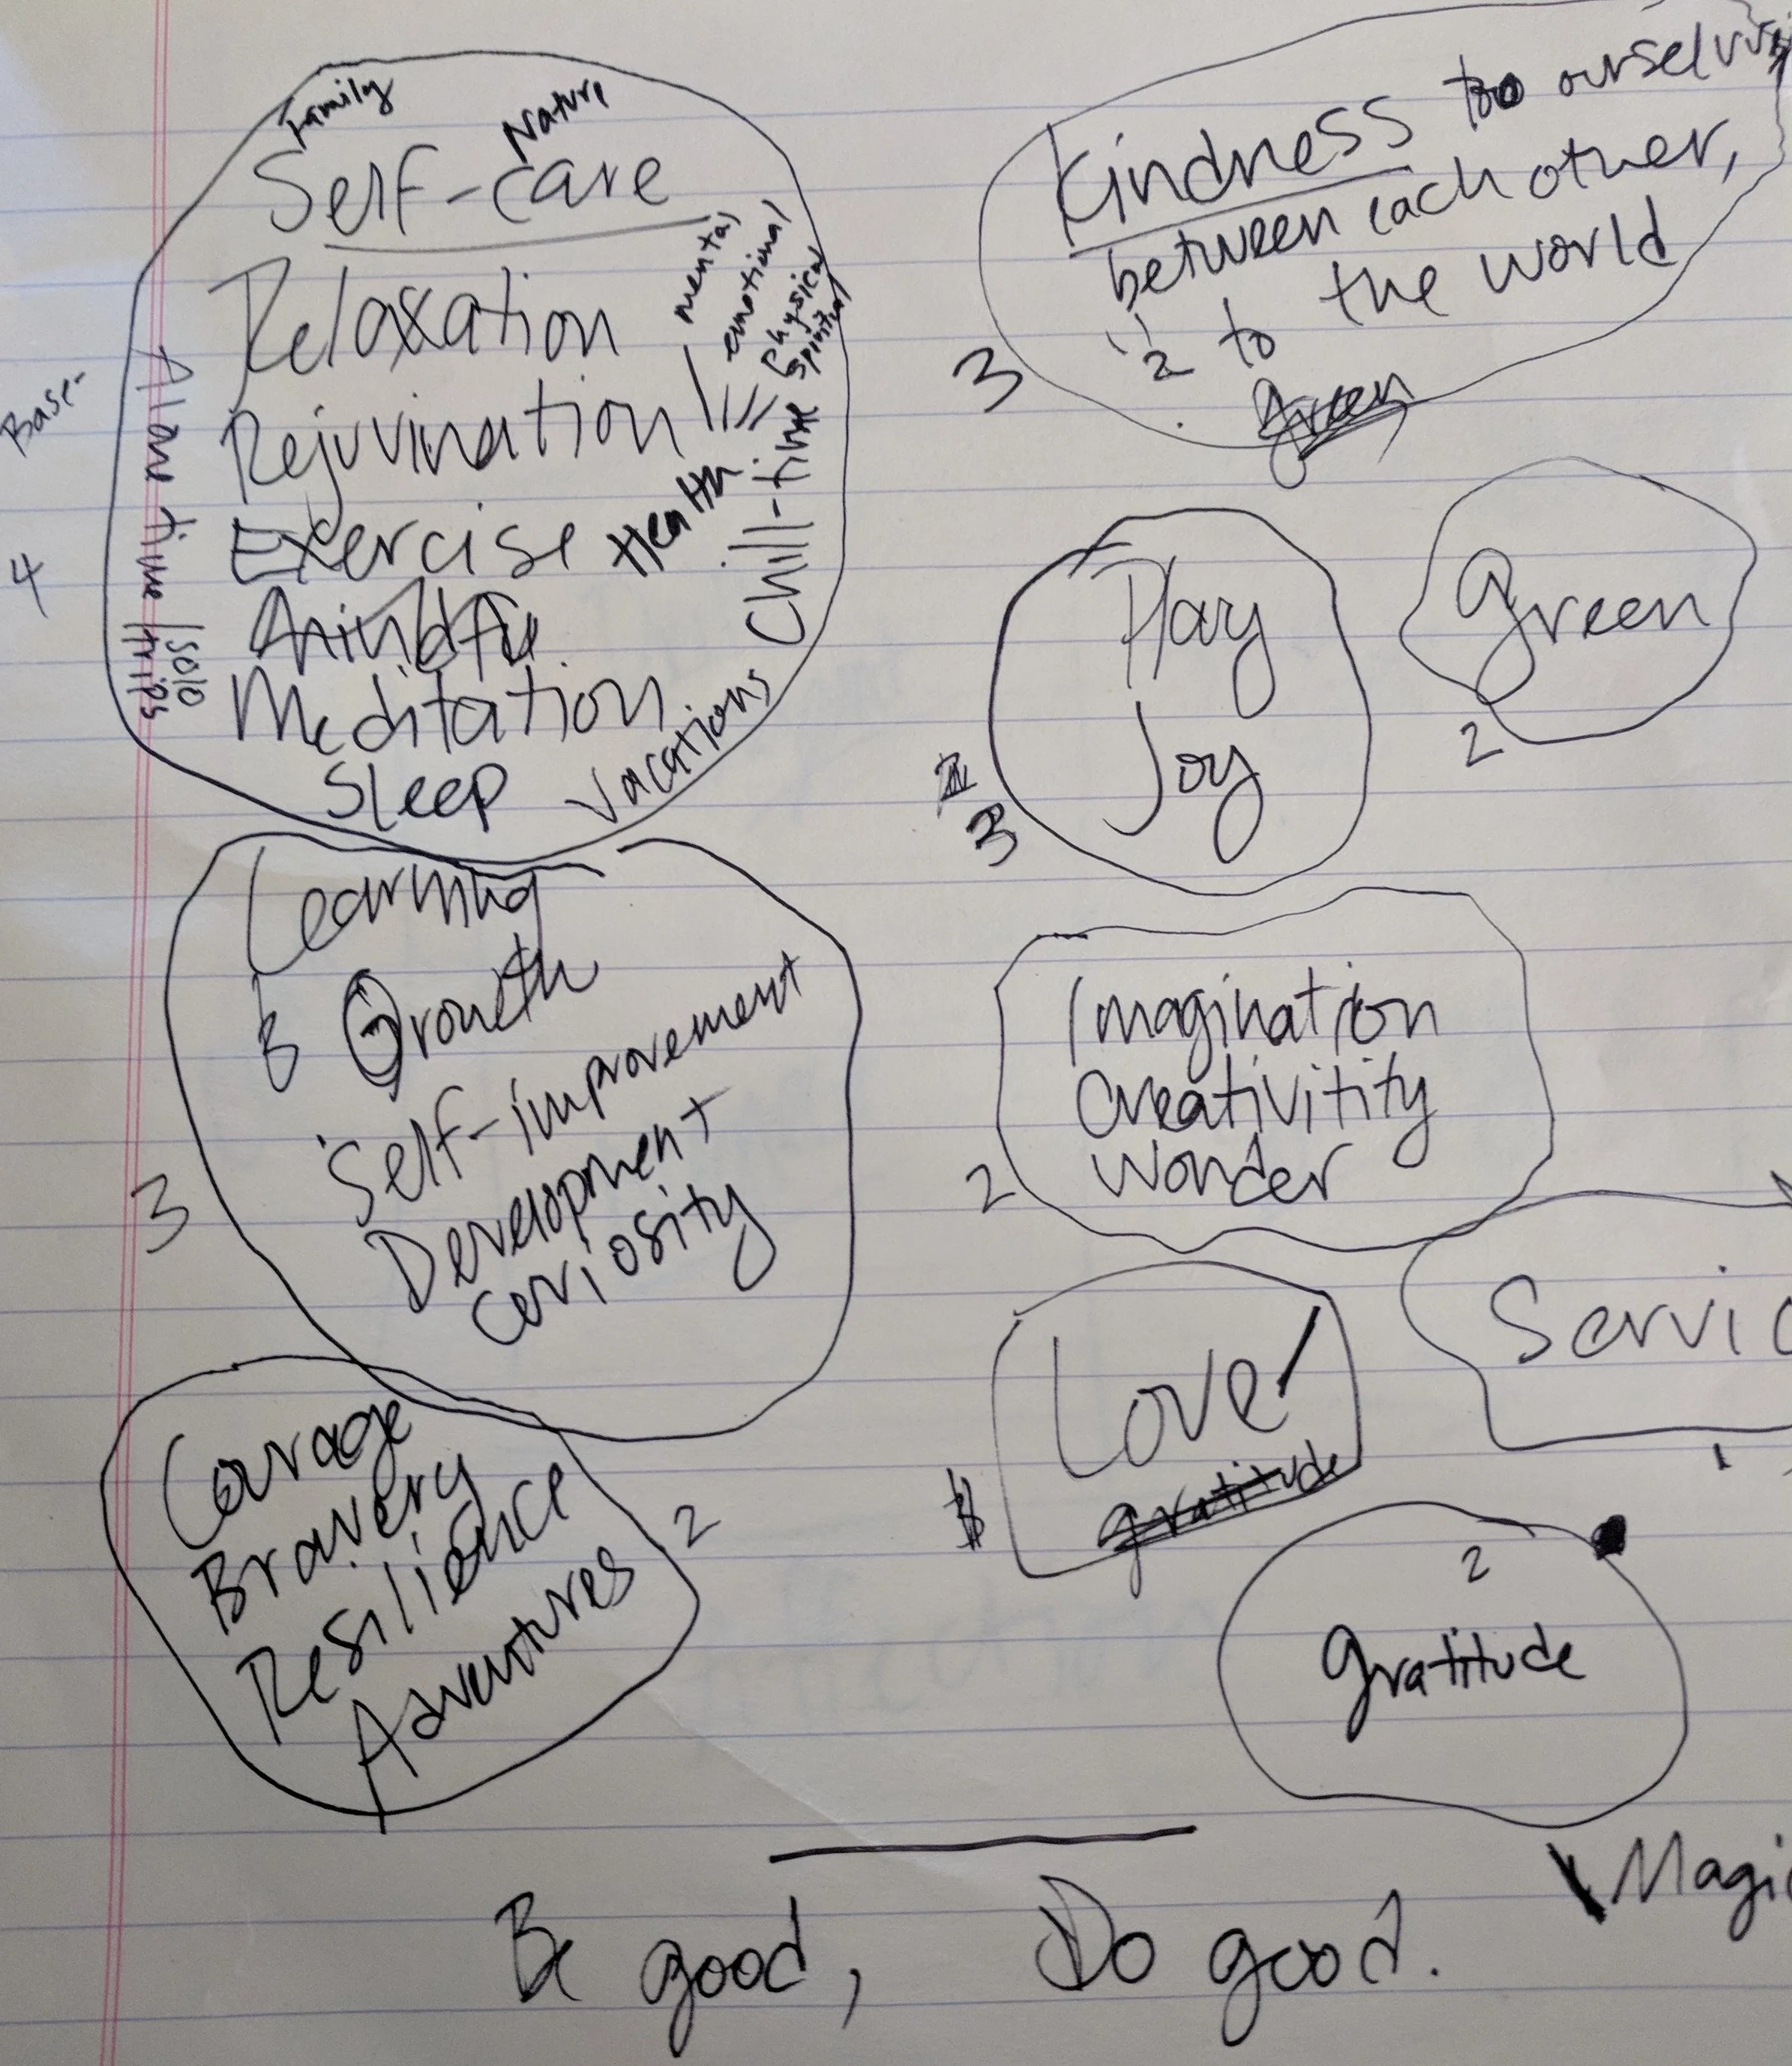 Family
Nature
Self-care
Relaxation
mental
emotional
physical
spiritual
Rejuvination
Exercise Health
Mindfu
Meditation
Sleep
Vacations
Chill-time
Alone time / solo trips
Base-
4
Kindness to ourselves
between each other,
" to the world
2 to
green
3
Play
Joy
3
Green
2
Learning
Growth
Self-improvement
Development
Curiosity
3
Imagination
Creativitity
Wonder
2
Servic
1
Love!
gratitude
Courage
Bravery
Resilience
Adventures
2
2
gratitude
Magic
Be good, Do good.